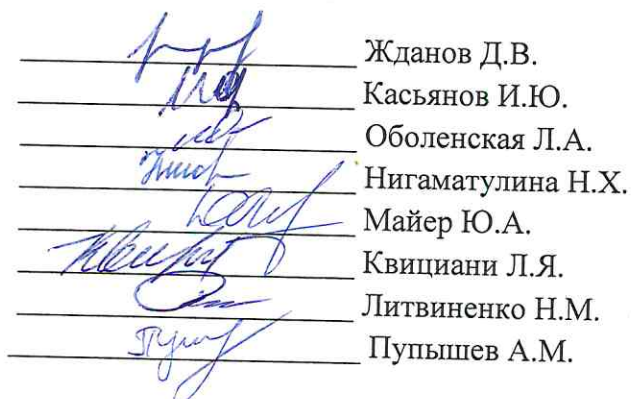 Жданов Д.В.
Касьянов И.Ю.
Оболенская Л.А.
Нигаматулина Н.Х.
Майер Ю.А.
Квициани Л.Я.
Литвиненко Н.М.
Пупышев А.М.